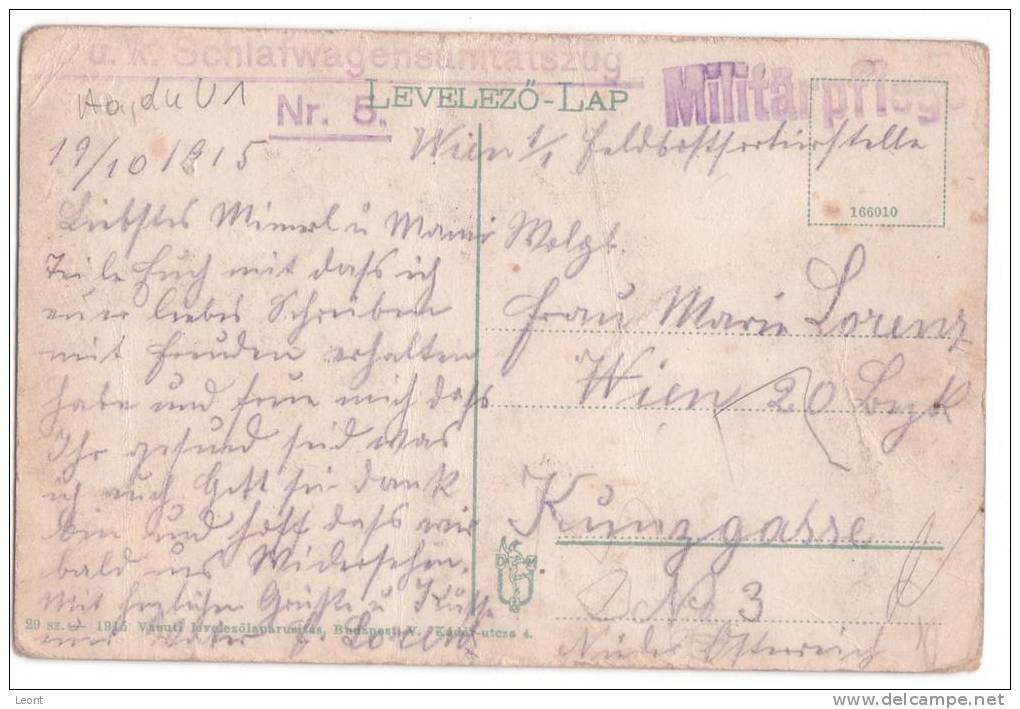 u. k. Schlafwagensanitätszug
Nr. 5.
Militärpflege
LEVELEZŐ-LAP
166010
19/10 1915
Wien 1/1 Feldpostsortierstelle
Liebstes Mimerl u Mami
Teile Euch mit dass ich
euer liebes Schreiben
mit Freuden erhalten
habe und freue mich dass
Ihr gesund seid was
ich auch Gott sei dank
bin und hoff dass wir
bald uns Widersehen.
Mit herzlichen Grüße u Küsse
Vater Lorenz
Wolgb.
Frau Marie Lorenz
Wien 20 Bezk
Kunzgasse
No 3
Nieder Österreich
29 sz. 1915 Vasuti levelezőlapárusitás, Budapest V. Kádár-utcza 4.
Leont
www.delcampe.net